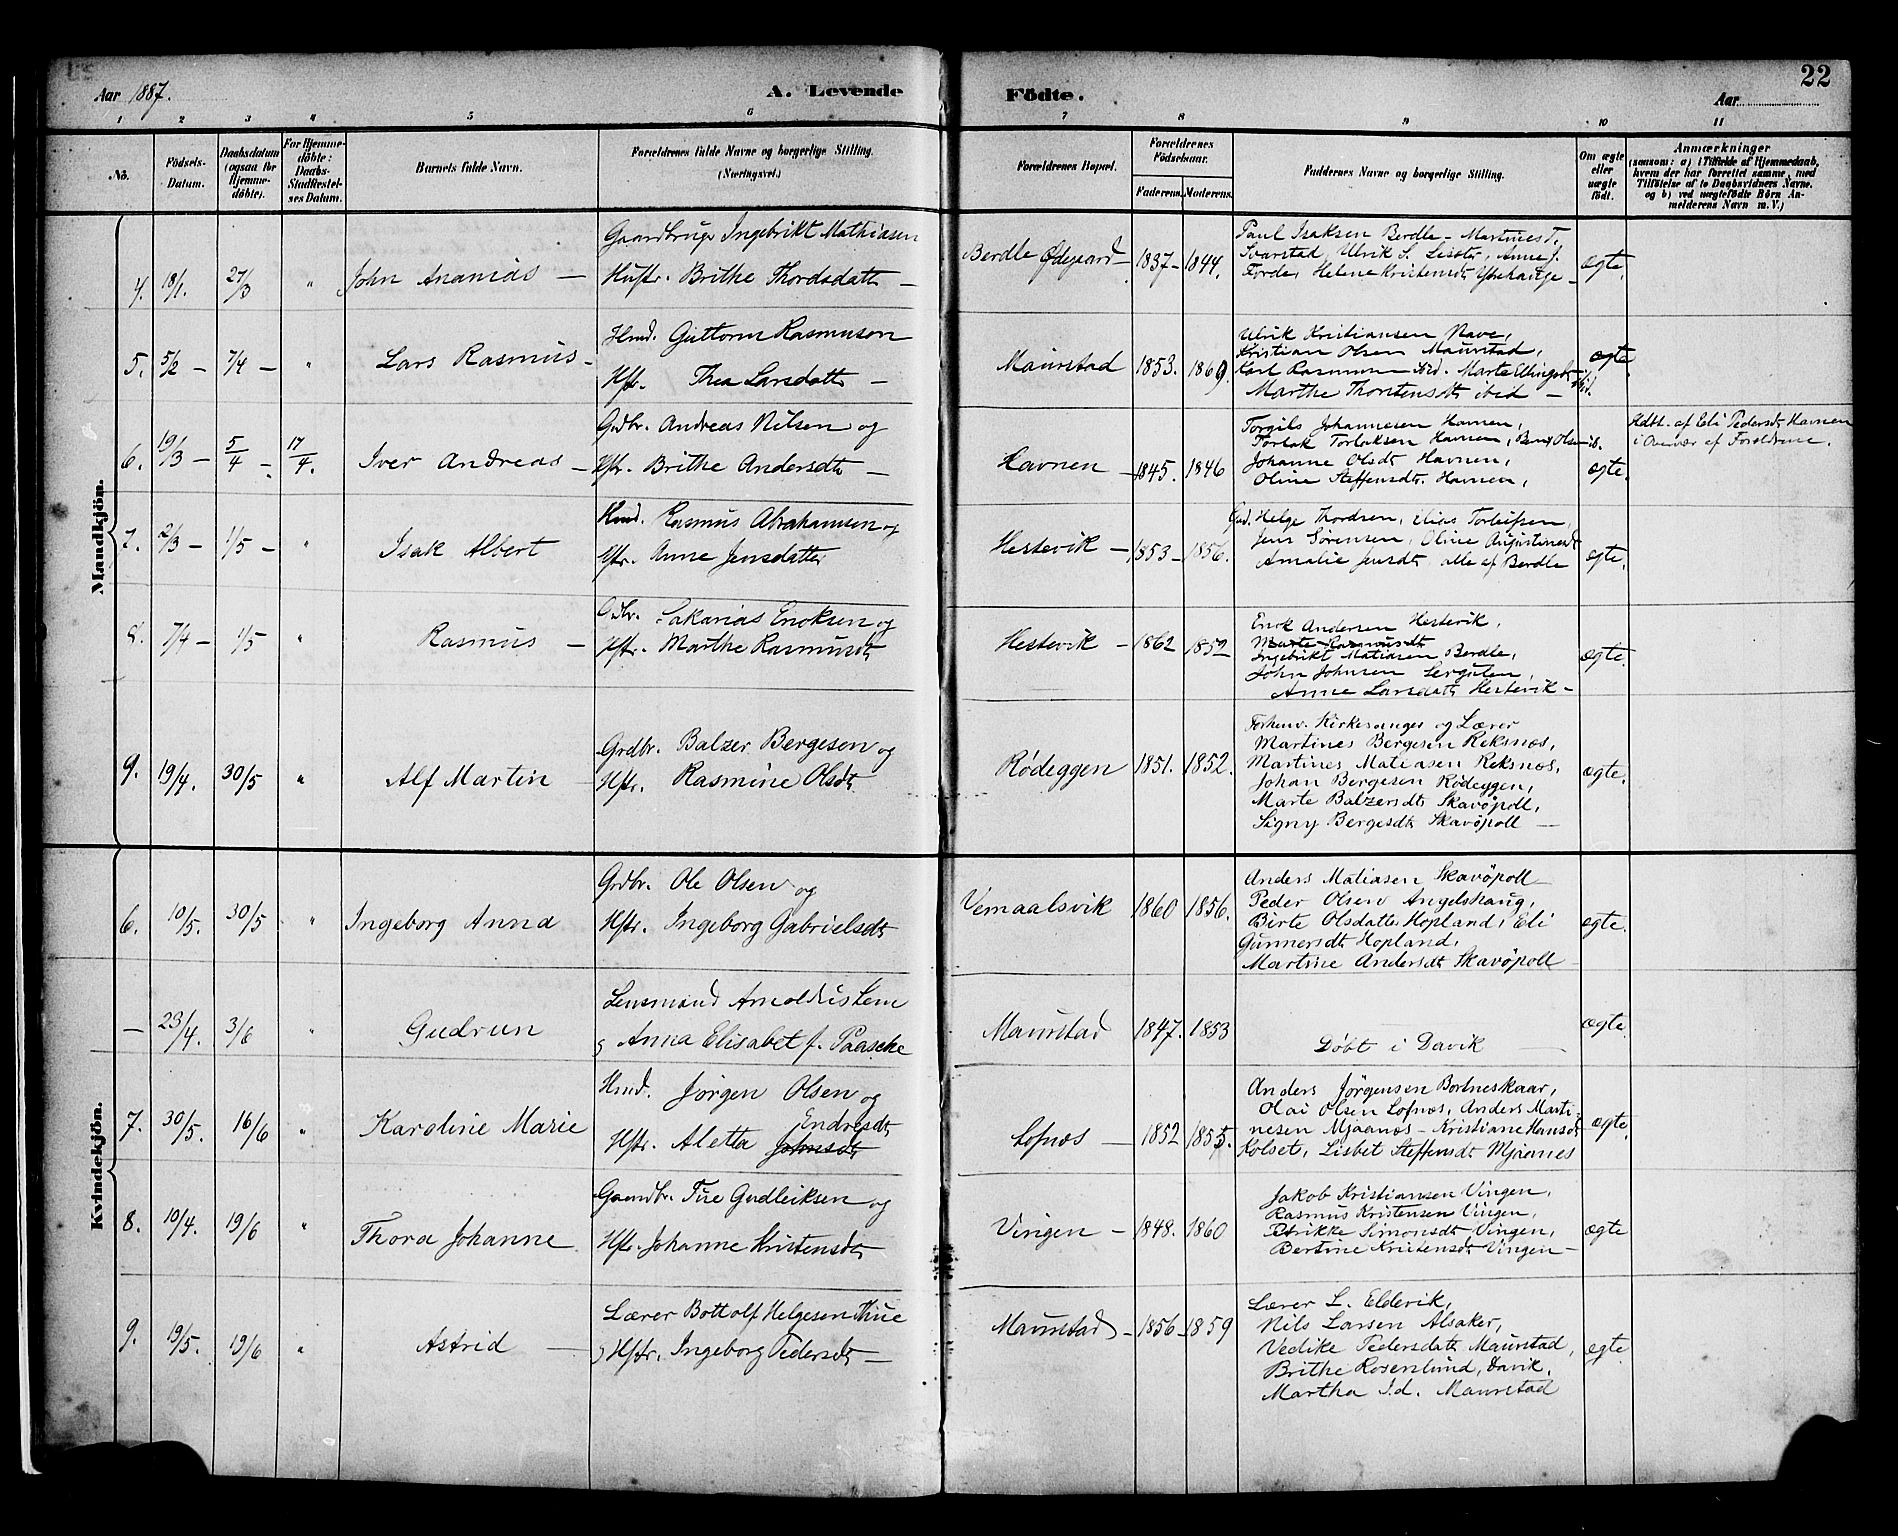 Aar 1887.
A. Levende
Födte.
Aar
22
1 2 3 4 5 6 7 8 9 10 11
No.
Födsels-
Datum.
Daabsdatum
(ogsaa for
Hjemme-
döbte).
For Hjemme-
döbte:
Daabs-
Stadfæstel-
ses Datum.
Barnets fulde Navn.
Forældrenes fulde Navne og borgerlige Stilling.
(Næringsvei.)
Forældrenes Bopæl.
Forældrenes
Födselsaar.
Faderens. Moderens.
Faddernes Navne og borgerlige Stilling.
Om ægte
eller
uægte
födt.
Anmærkninger
(saasom: a) i Tilfælde af Hjemmedaab,
hvem der har forrettet samme, med
Tilföielse af to Daabsvidners Navne.
og b) ved uægtefödte Börn An-
melderens Navn m. V.)
Mandkjön.
4. 18/1. 27/3 " John Ananias —
Gaardbruger Ingebrikt Mathiasen
Hustr. Brithe Thordsdatt —
Berdle Ødegaard — 1837 — 1844.
Paul Isaksen Berdle — Martines T.
Svarstad, Ulrik S. Anne J.
Förde, Helene Kristensdt
ægte.
5. 5/2 — 7/4 — " Lars Rasmus —
Hmd. Guttorm Rasmuson
Hstr. Thea Larsdatt —
Maurstad 1853. 1869.
Ulrik Kristiansen Nave,
Kristian Olsen Maurstad,
Karl Rasmussen Marte
Marthe Thorstensdt ibid —
ægte.
6. 19/3 — 5/4 — 17/4. Iver Andreas —
Grdbr. Andreas Nilsen og
Hstr. Brithe Andersdt —
Havnen — 1845. 1846
Torgils Johannesen Havnen,
Torlak Torlaksen Havnen,
Johanne Olsdt Havnen,
Oline Steffensdt. Havnen,
ægte.
Hdbt. af Eli Pedersdt Havnen
i Overvær af Forældrene.
7. 2/3 — 1/5 — " Isak Albert
Hmd. Rasmus Abrahamsen og
Hstr. Anne Jensdatter
Hestevik — 1853 — 1856.
Helge Thordsen, Elias Torleifsen,
Jens Sörensen, Oline Augustinusdt
Amalie Jensdt. alle af Berdle
ægte.
8. 7/4 — 1/5 " Rasmus —
Grdbr. Sakarias Enoksen og
Hstr. Marthe Rasmusdt
Hestevik — 1862 1852
Enok Andersen Hestevik,
Marte Rasmusdt
Ingebrikt Matiasen Berdle,
John Johnsen
Anne Larsdatt Hestevik —
ægte.
9. 19/4. 30/5 " Alf Martin —
Grdbr. Balzer Bergesen og
Hstr. Rasmine Olsdt.
Rödeggen 1851. 1852.
Forhenv. Kirkesanger og Lærer
Martines Bergesen Reksnæs,
Martines Matiasen Reksnæs,
Johan Bergesen Rödeggen,
Marte Balzersdt Skavöpoll,
Signy Bergesdt Skavöpoll —
ægte.
Kvindekjön.
6. 10/5. 30/5 " Ingeborg Anna
Grdbr. Ole Olsen og
Hstr. Ingeborg Gabrielsdt
Vemaalsvik 1860 1856.
Anders Matiasen Skavöpoll
Peder Olsen Angelshaug,
Birte Olsdatter Hopland, Eli
Gunnersdt Hopland,
Martine Andersdt Skavöpoll
ægte.
— 23/4. 3/6 " Gudrun
Lensmand Arnoldus Lem
og Anna Elisabet f. Paasche
Maurstad 1847. 1853
Döbt i Davik
ægte
7. 30/5. 16/6 " Karoline Marie
Hmd. Jörgen Olsen og
Endresdt
Hstr. Aletta Johnsdt
Lofnæs — 1852 1855.
Anders Jörgensen Bortneskaar,
Olai Olsen Lofnæs, Anders Marti-
nesen Mjaanæs — Kristiane Hansdt
Kolset, Lisbet Steffensdt Mjaanes
ægte.
8. 10/4. 19/6 " Thora Johanne
Gaardbr. Tue Gudleiksen og
Hstr. Johanne Kristensdt
Vingen — 1848. 1860
Jakob Kristiansen Vingen,
Rasmus Kristensen Vingen,
Petrikke Simonsdt Vingen,
Bertine Kristensdt Vingen —
ægte
9. 19/5. 19/6 " Astrid —
Lærer Bottolf Helgesen Thue
og Hstr. Ingeborg Pedersdt —
Maurstad — 1856 — 1859
Lærer L. Eldevik,
Nils Larsen Alsaker,
Vedike Pedersdatt Maurstad,
Brithe Rosenlund, Davik,
Martha I.d. Maurstad
ægte